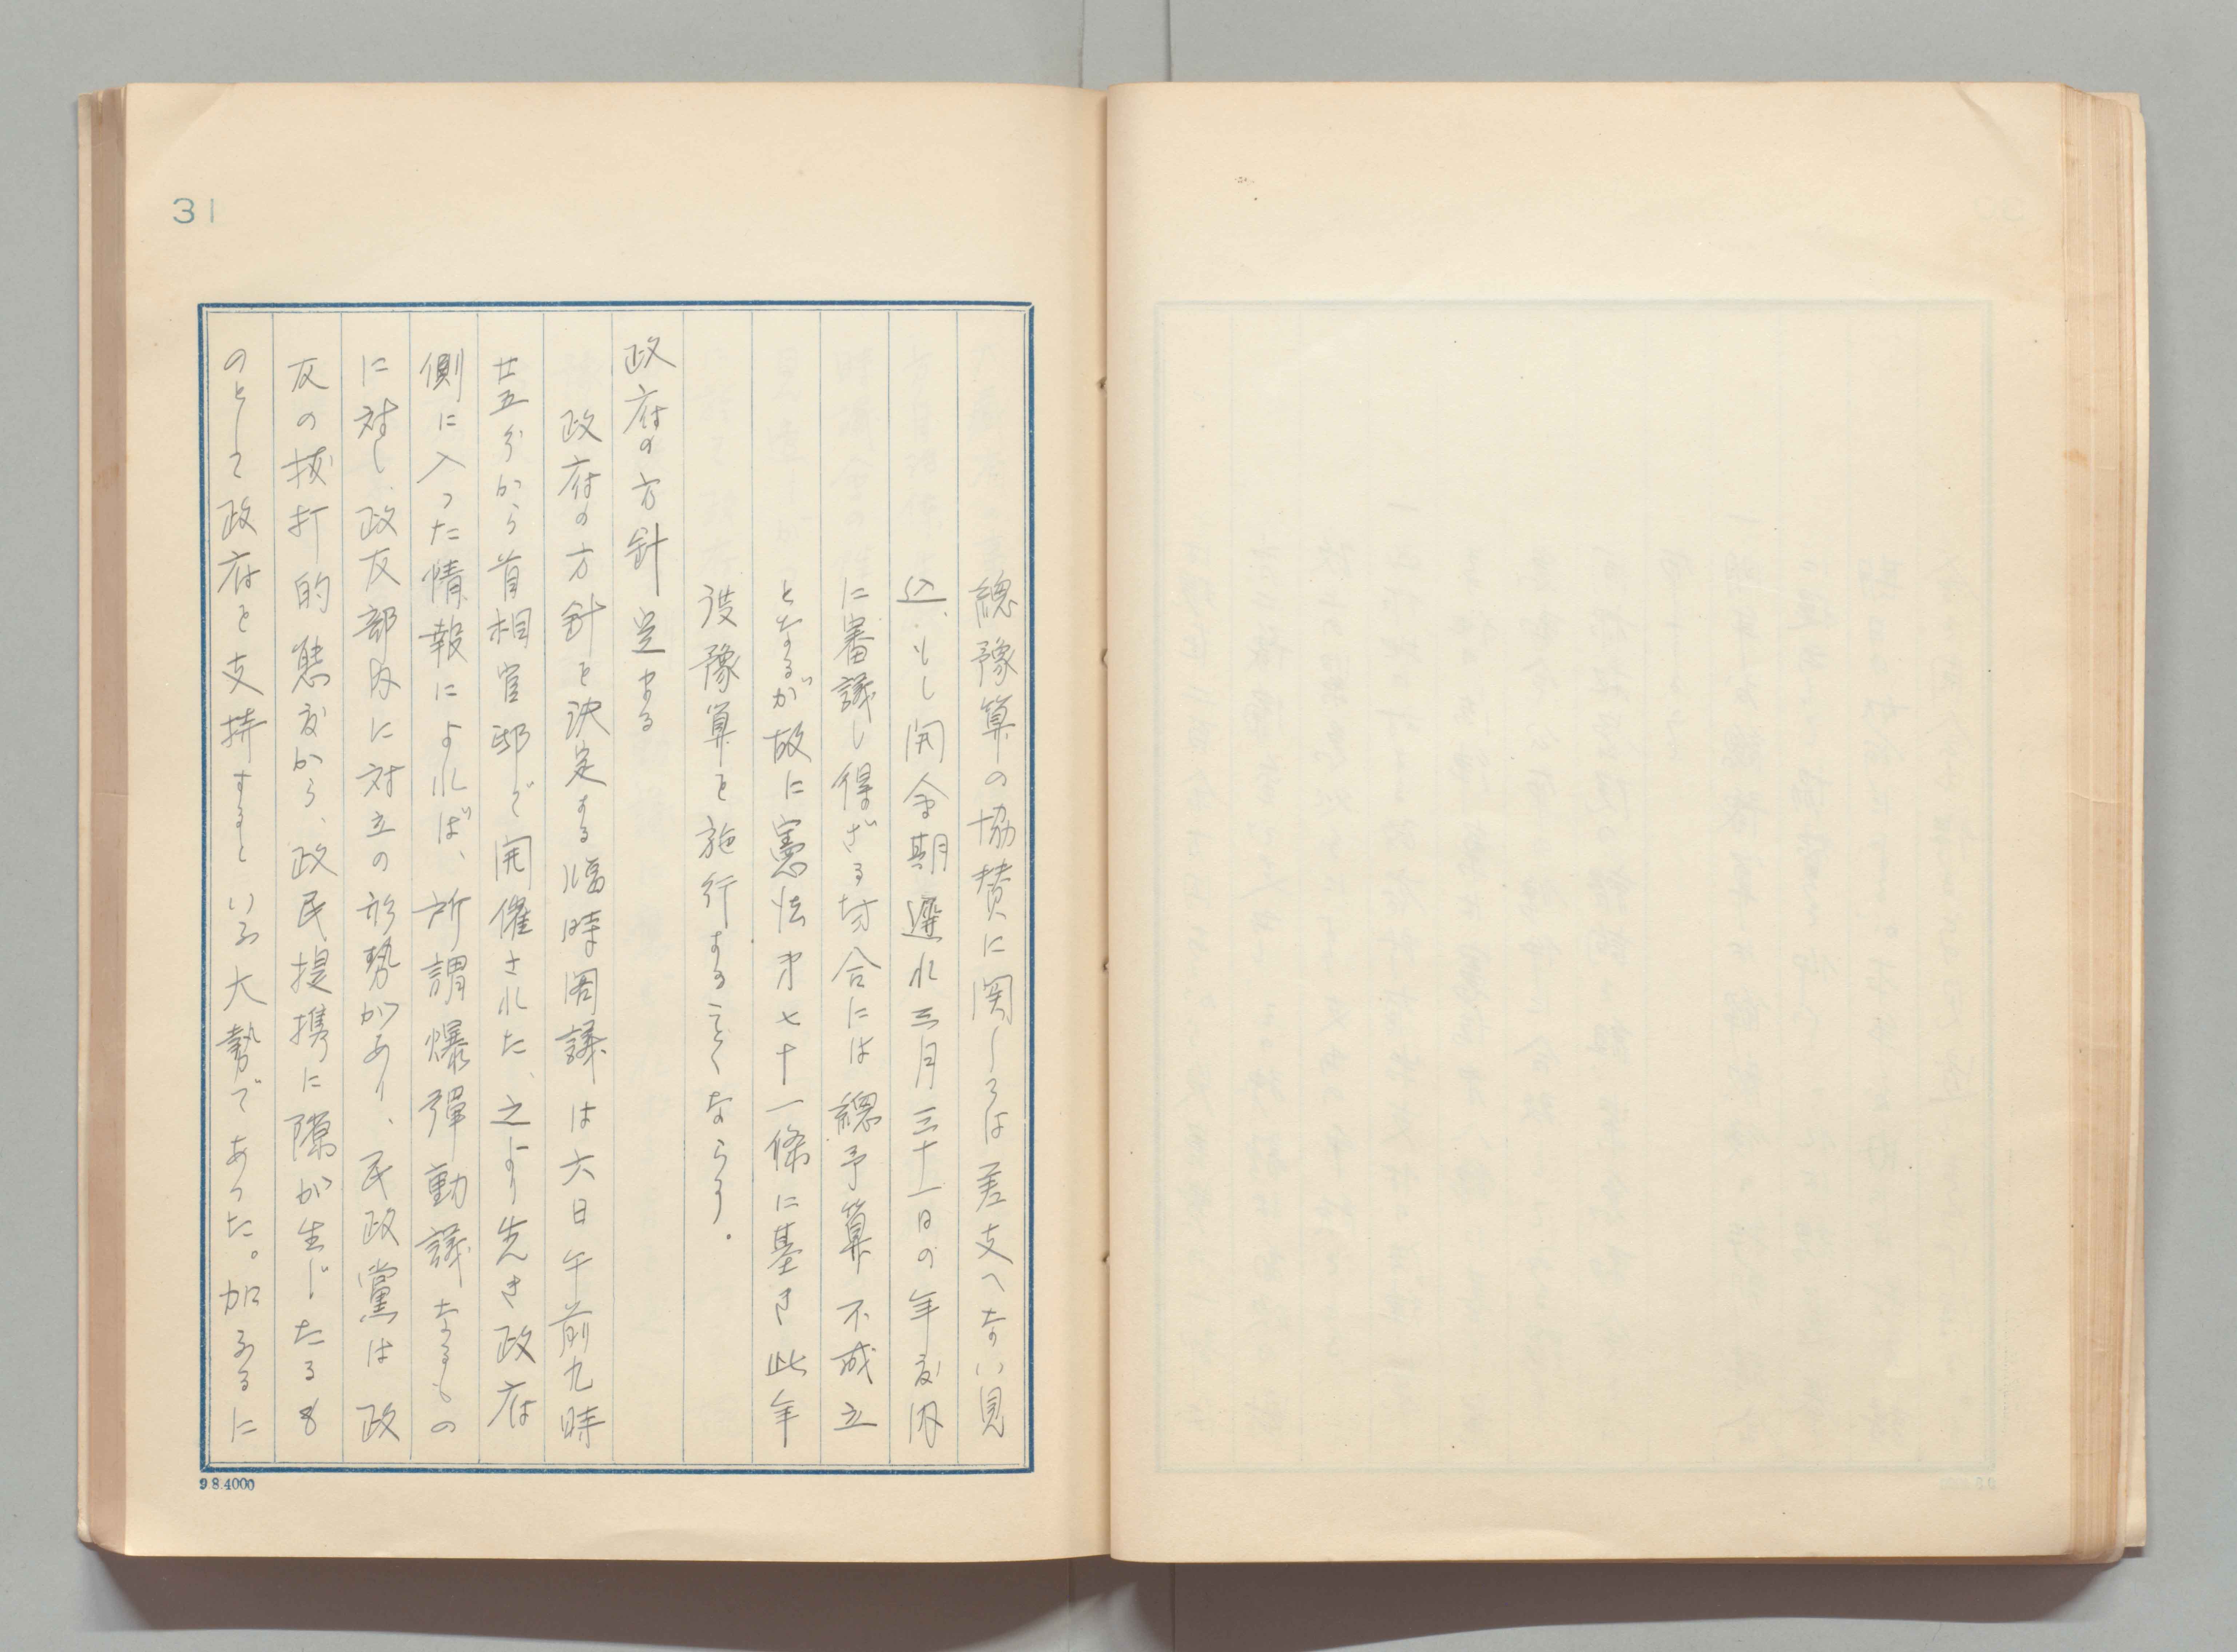 31
總豫算の協賛に関しては差支へない見
込、もし開会期遅れ三月三十一日の年度内
に審議し得ざる場合には總予算不成立
となるが故に憲法第七十一條に基き此年
度豫算を施行することゝならう。
政府の方針定まる
政府の方針を決定する臨時閣議は六日午前九時
廿五分から首相官邸で開催された、之より先き政府
側に入った情報によれば、所謂爆弾動議なるもの
に対し、政友部内に対立の形勢があり、民政黨は政
友の抜打的態度から、政民提携に隙が生じたるも
のとして政府を支持するといふ大勢であった。加ふるに
9 8.4000